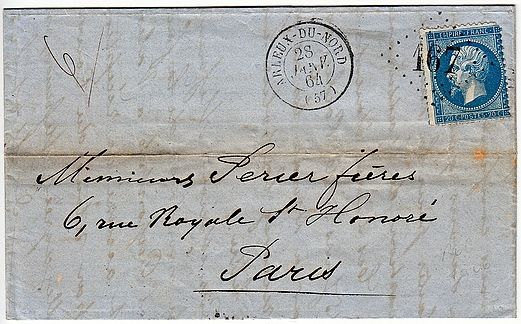 ARLEUX-DU-NORD
28
JANV.
64
(57)
167
EMPIRE FRANC.
20 C. POSTES 20 C.
Messieurs Perier frères
6, rue Royale St Honoré
Paris